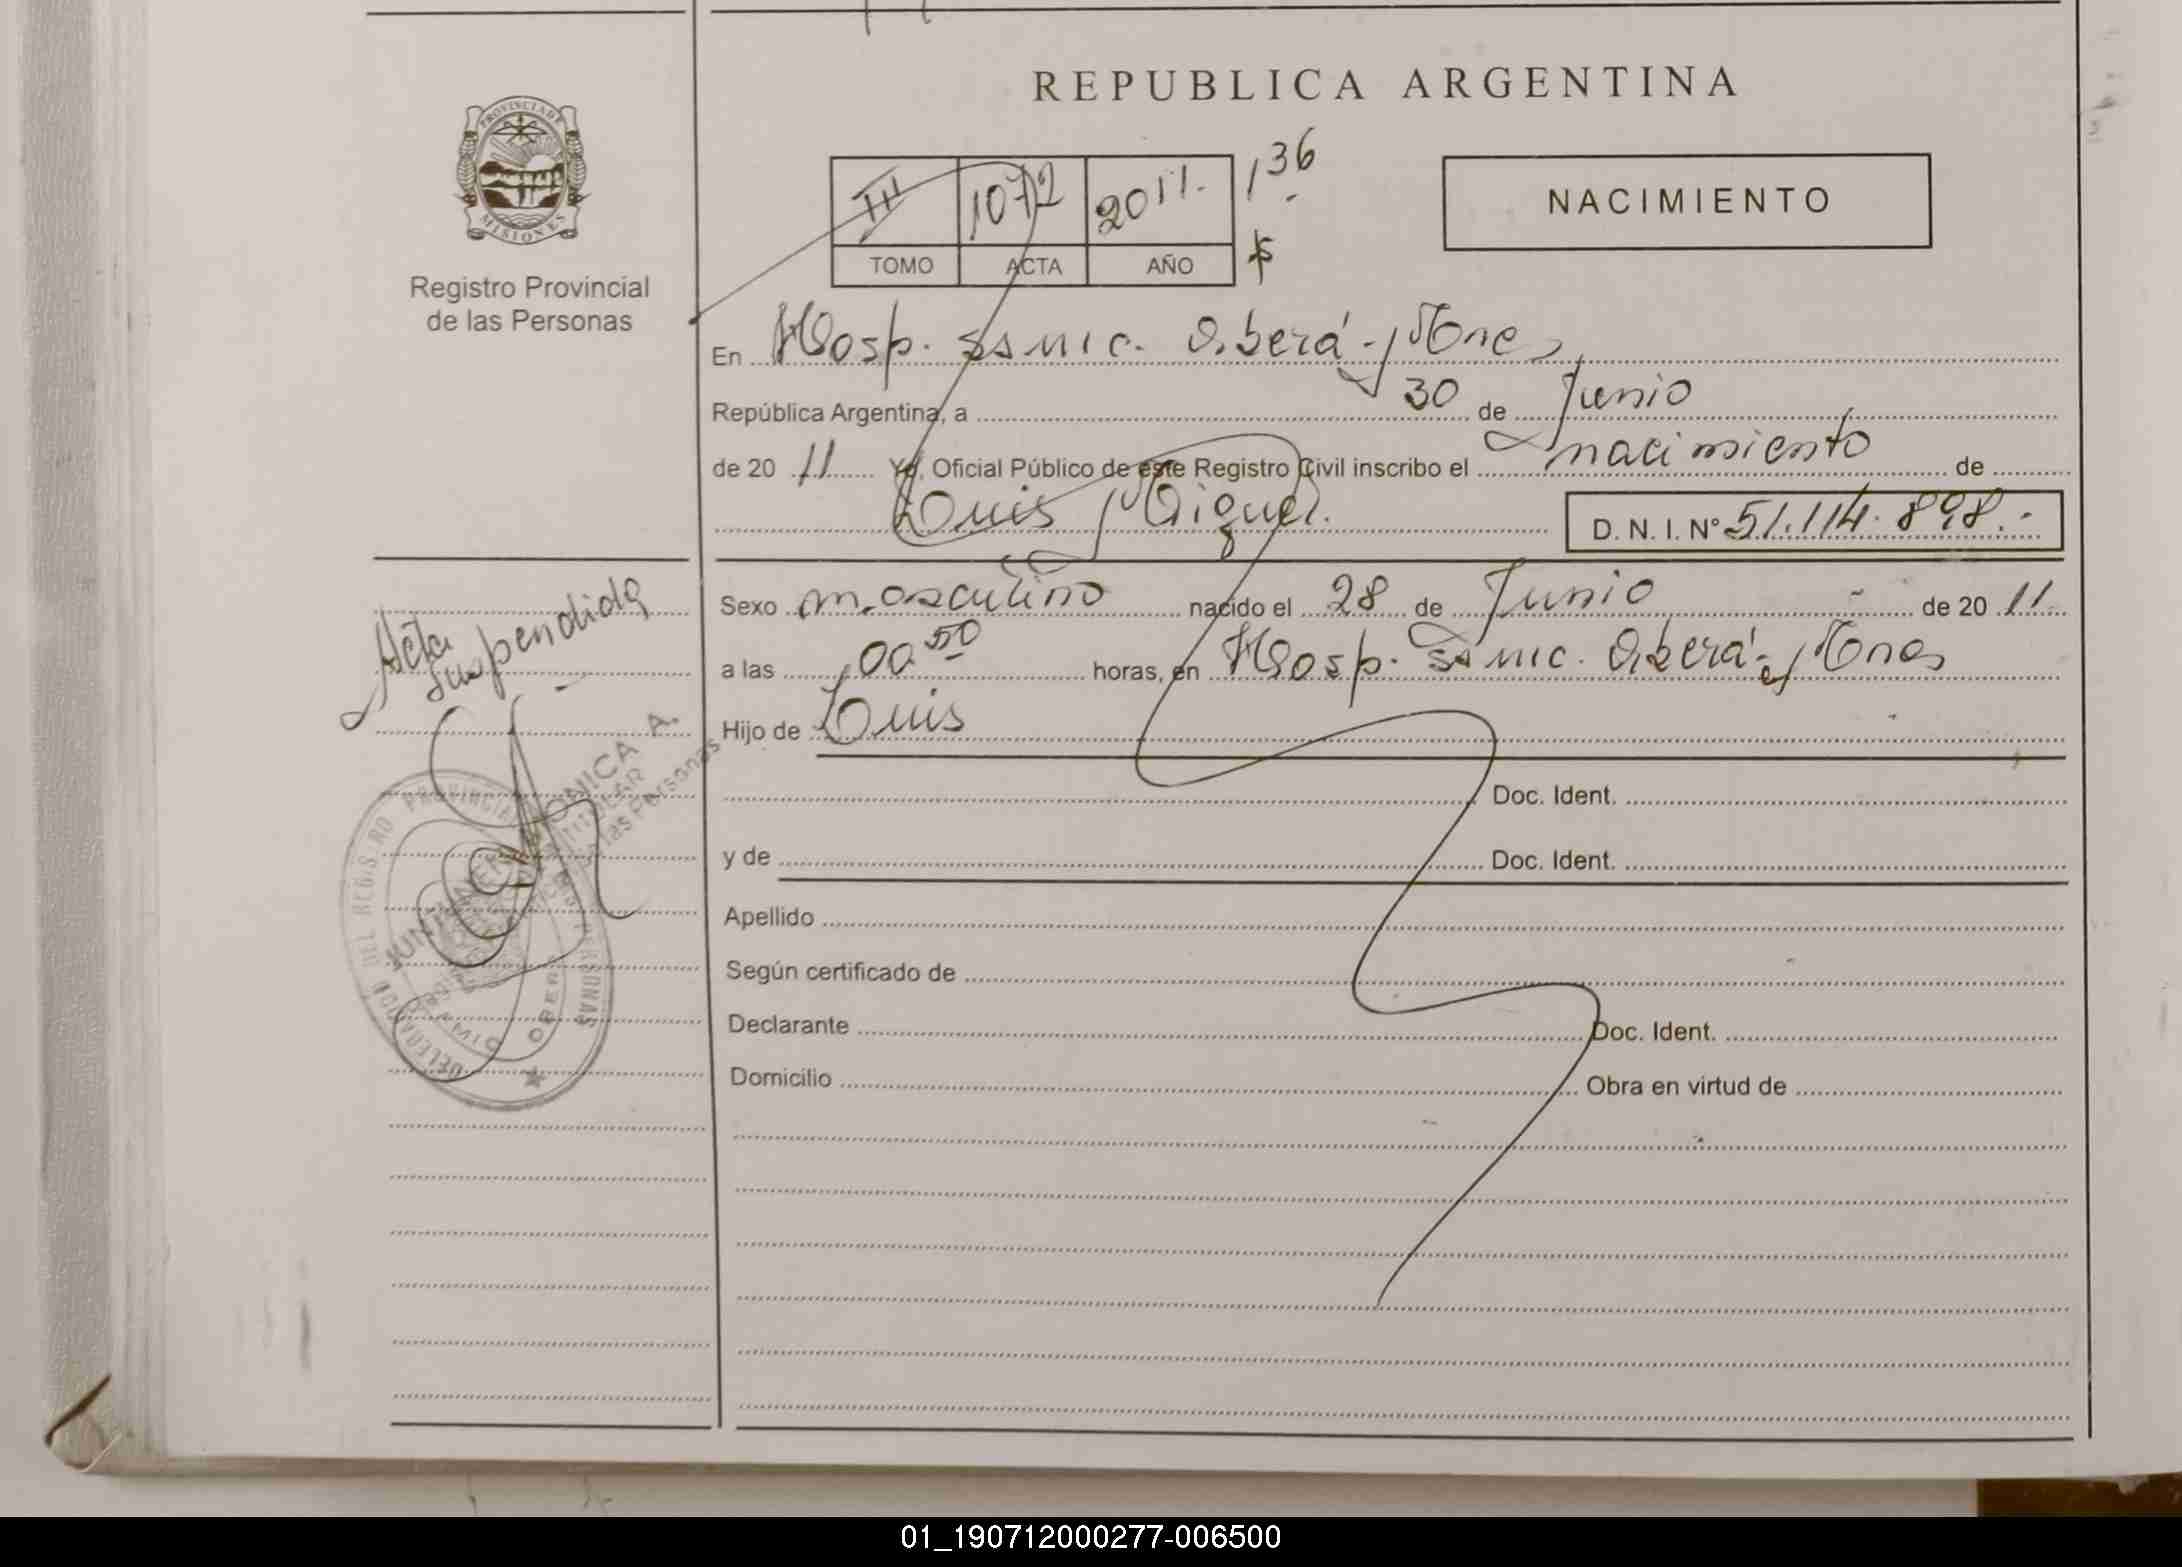 REPUBLICA ARGENTINA
PROVINCIA DE
MISIONES
Registro Provincial
de las Personas
III 1072 2011.- 136
TOMO ACTA AÑO
NACIMIENTO
En Hosp. Ssmic. Oberá - Mnes
República Argentina, a 30 de Junio
de 20 11 Yo, Oficial Público de este Registro Civil inscribo el nacimiento de
Luis Miguel.
D. N. I. N° 51.114.898.-
Acta
Suspendida
Sexo masculino nacido el 28 de Junio de 20 11
a las 00 50 horas, en Hosp. Ssmic. Oberá - Mnes
Hijo de Luis
Doc. Ident.
y de Doc. Ident.
Apellido
Según certificado de
Declarante Doc. Ident.
Domicilio Obra en virtud de
MONICA A.
TITULAR
de las Personas
DEL REGISTRO PROVINCIAL
PERSONAS
OBERA
01_190712000277-006500